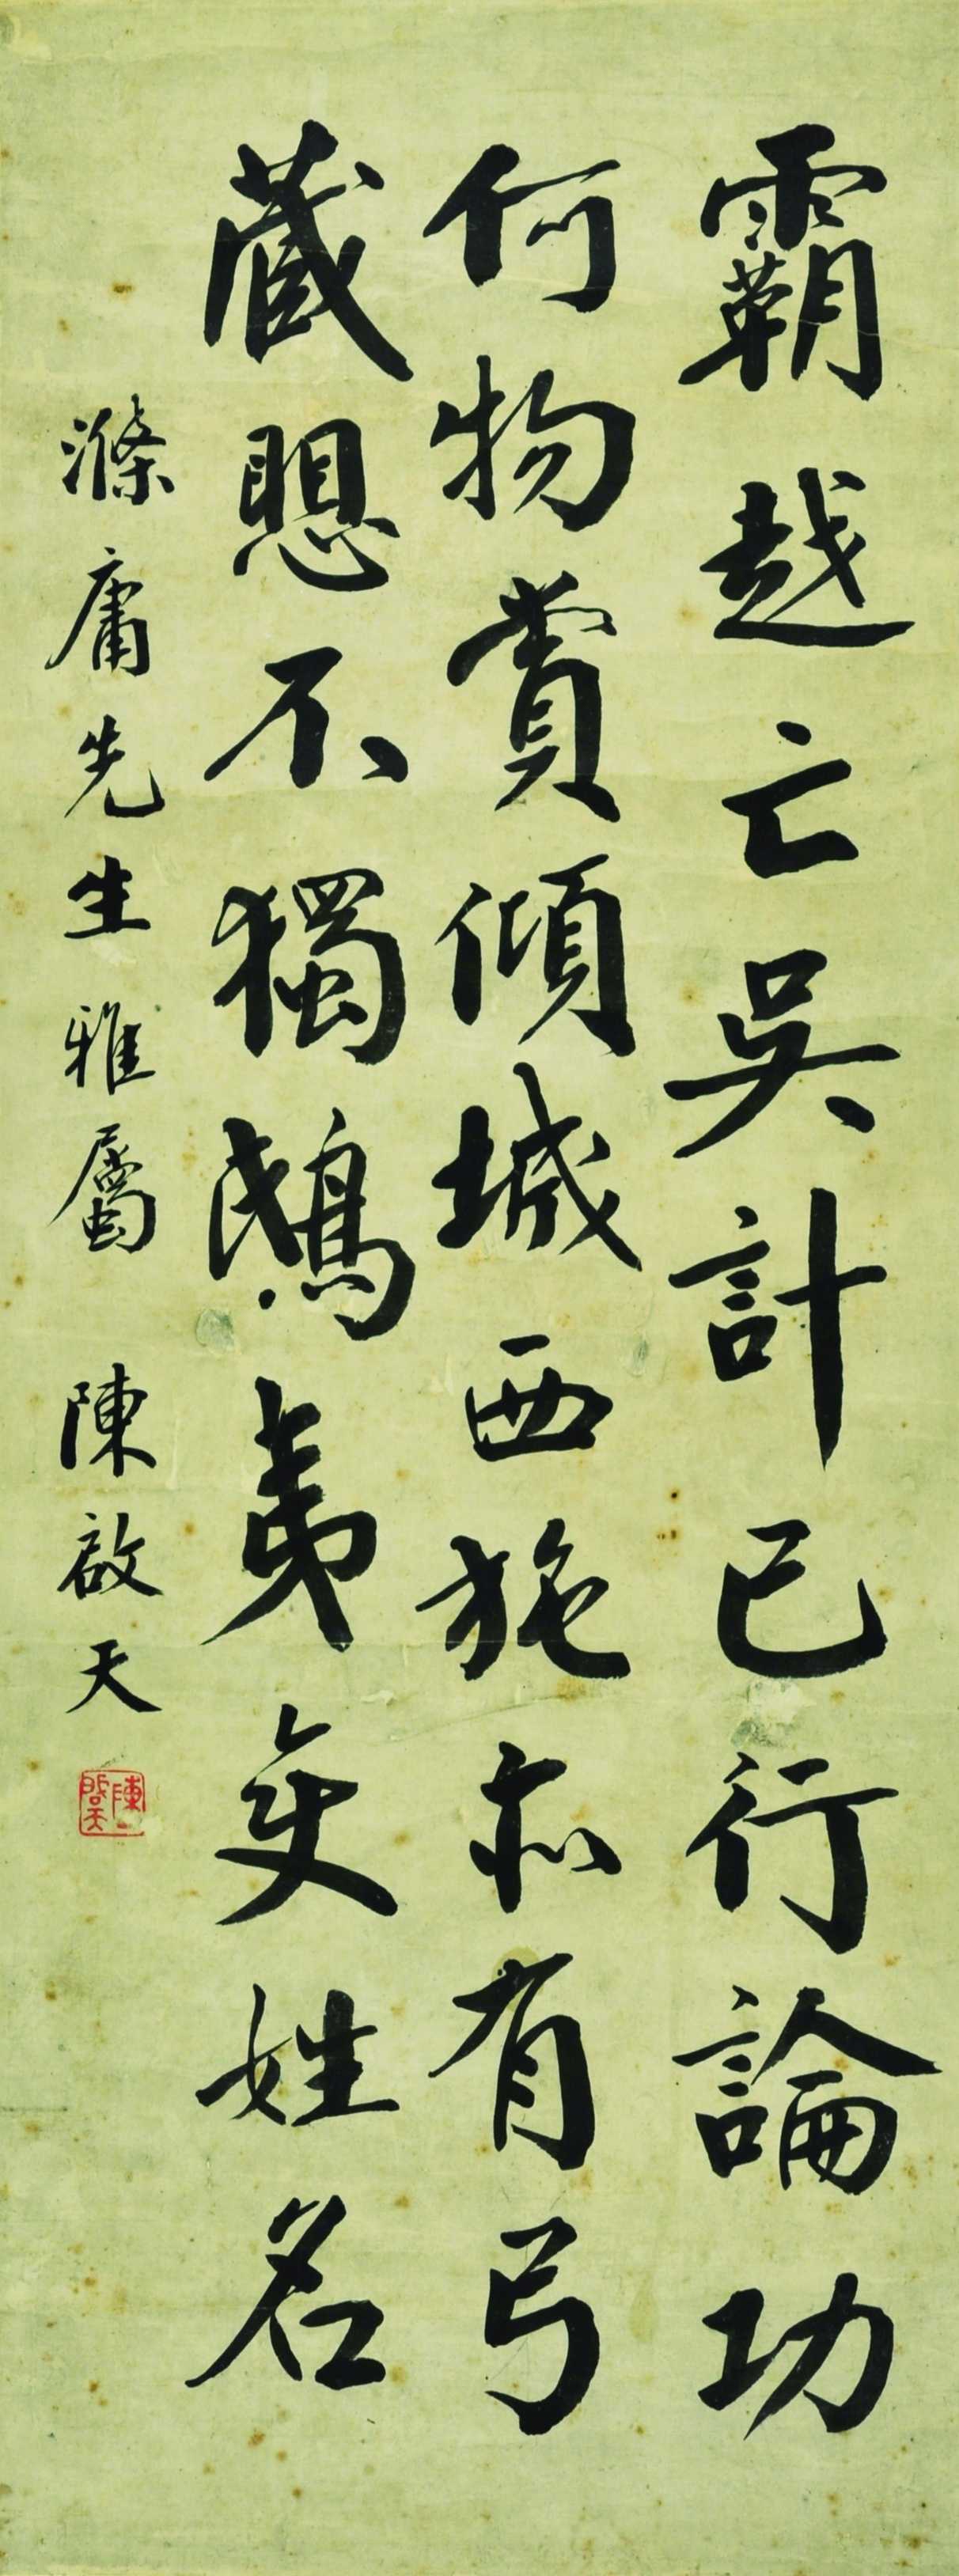 霸越亡吳計已行論功
何物賞傾城西施亦有弓
藏愳不獨鴟夷変姓名
滌庸先生雅屬 陳啟天